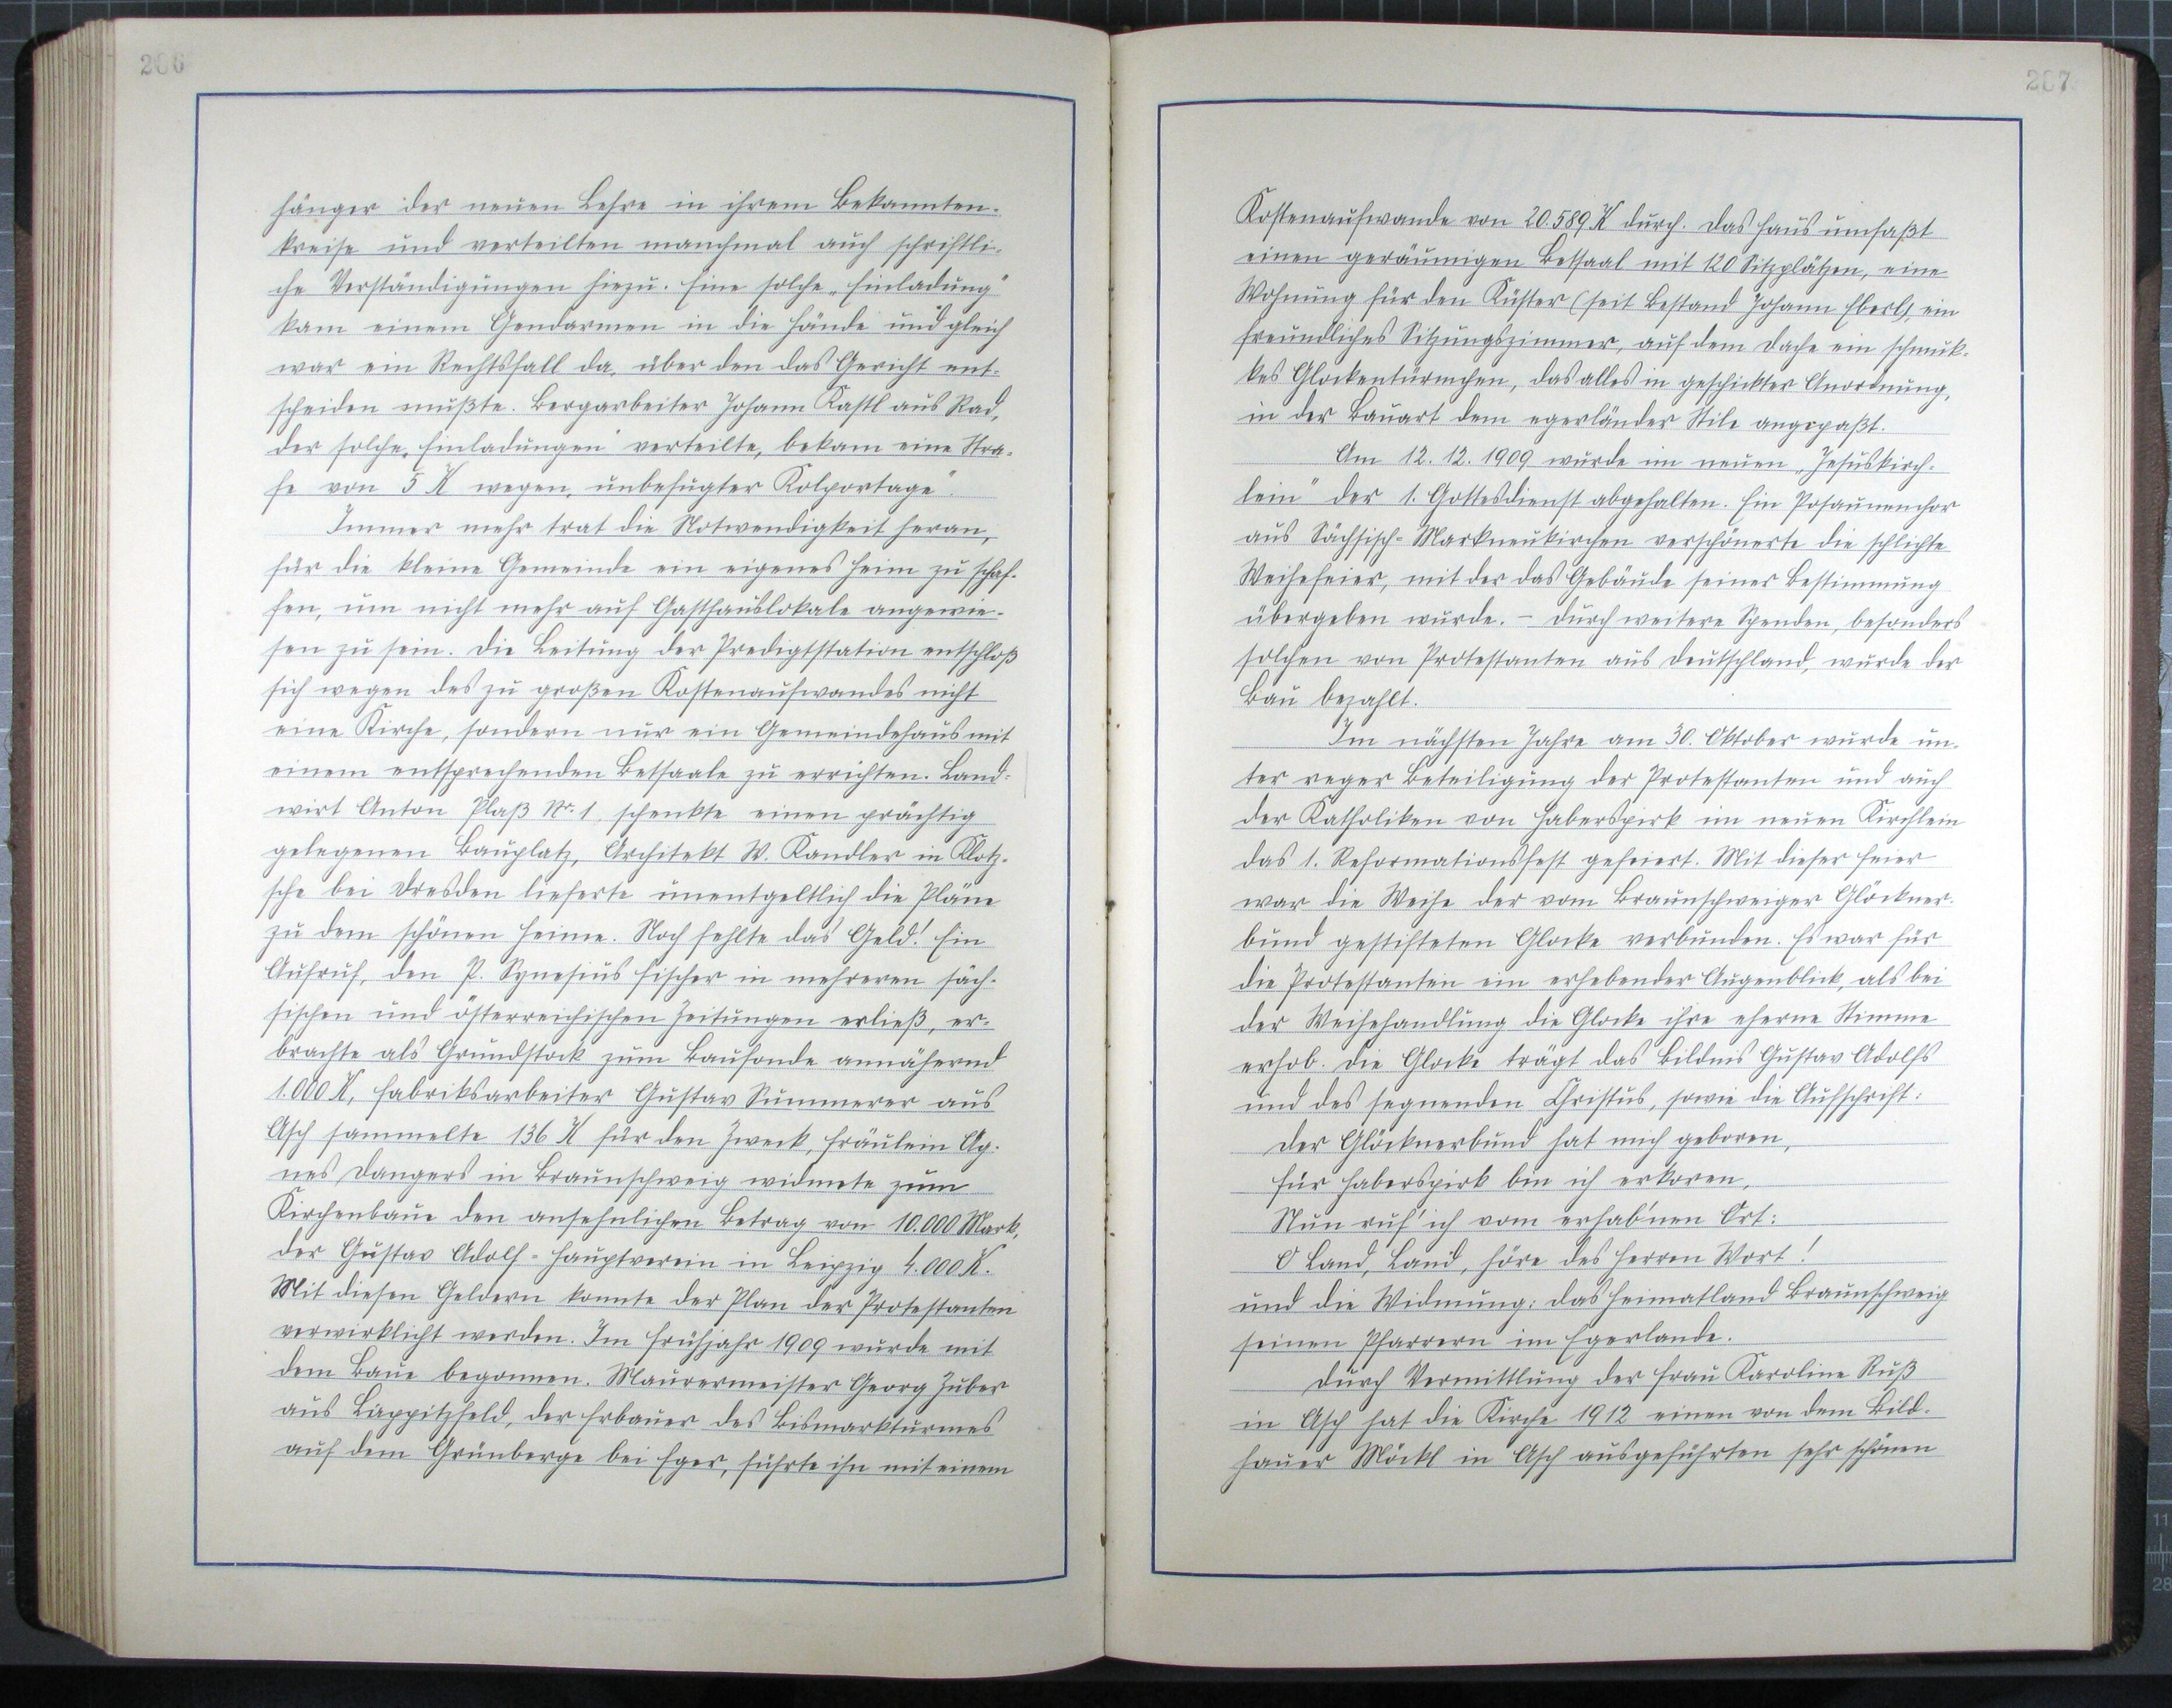 206
hänger der neuen Lehre in ihrem Bekannten-
kreise und verteilten manchmal auch schriftli-
che Verständigungen hiezu. Eine solche „Einladung"
kam einem Gendarmen in die Hände und gleich
war ein Rechtsfall da, über den das Gericht ent-
scheiden mußte. Bergarbeiter Johann Kastl aus Rad,
der solche „Einladungen" verteilte, bekam eine Stra-
fe von 5 K wegen „unbefugter Kolportage".
Immer mehr trat die Notwendigkeit heran,
für die kleine Gemeinde ein eigenes Heim zu schaf-
fen, um nicht mehr auf Gasthauslokale angewie-
sen zu sein. Die Leitung der Predigtstation entschloß
sich wegen des zu großen Kostenaufwandes nicht
eine Kirche, sondern nur ein Gemeindehaus mit
einem entsprechenden Betsaale zu errichten. Land-
wirt Anton Plaß Nr. 1, schenkte einen prächtig
gelegenen Bauplatz, Architekt W. Kandler in Klotz-
sche bei Dresden lieferte unentgeltlich die Pläne
zu dem schönen Heime. Noch fehlte das Geld! Ein
Aufruf, den P. Synesius Fischer in mehreren säch-
sischen und österreichischen Zeitungen erließ, er-
brachte als Grundstock zum Baufonde annähernd
1.000 K, Fabriksarbeiter Gustav Summerer aus
Asch sammelte 136 K für den Zweck, Fräulein Ag-
nes Dangers in Braunschweig widmete zum
Kirchenbaue den ansehnlichen Betrag von 10.000 Mark,
der Gustav Adolf-Hauptverein in Leipzig 4.000 K.
Mit diesen Geldern konnte der Plan der Protestanten
verwirklicht werden. Im Frühjahr 1909 wurde mit
dem Baue begonnen. Maurermeister Georg Zuber
aus Lappitzfeld, der Erbauer des Bismarkturmes
auf dem Grünberge bei Eger, führte ihn mit einem
207
Kostenaufwande von 20.589 K durch. Das Haus umfaßt
einen geräumigen Betsaal mit 120 Sitzplätzen, eine
Wohnung für den Küster (seit Bestand Johann Eberl) ein
freundliches Sitzungszimmer, auf dem Dache ein schmuk-
kes Glockentürmchen, das alles in geschickter Anordnung,
in der Bauart dem egerländer Stile angepaßt.
Am 12. 12. 1909 wurde im neuen „Jesuskirch-
lein" der 1. Gottesdienst abgehalten. Ein Posaunenchor
aus Sächsisch-Markneukirchen verschönerte die schlichte
Weihefeier, mit der das Gebäude seiner Bestimmung
übergeben wurde. – Durch weitere Spenden, besonders
solchen von Protestanten aus Deutschland, wurde der
Bau bezahlt.
Im nächsten Jahre am 30. Oktober wurde un-
ter reger Beteiligung der Protestanten und auch
der Katholiken von Haberspirk im neuen Kirchlein
das 1. Reformationsfest gefeiert. Mit dieser Feier
war die Weihe der vom Braunschweiger Glöckner-
bund gestifteten Glocke verbunden. Es war für
die Protestanten ein erhebender Augenblick, als bei
der Weihehandlung die Glocke ihre eherne Stimme
erhob. Die Glocke trägt das Bildnis Gustav Adolfs
und des segnenden Christus, sowie die Aufschrift:
Der Glöcknerbund hat mich geboren,
Für Haberspirk bin ich erkoren,
Nun ruf' ich vom erhab'nen Ort:
O Land, Land, höre des Herren Wort!
und die Widmung: Das Heimatland Braunschweig
seinen Pfarrern im Egerlande.
Durch Vermittlung der Frau Karoline Ruß
in Asch hat die Kirche 1912 einen von dem Bild-
hauer Möckl in Asch ausgeführten sehr schönen
11
28